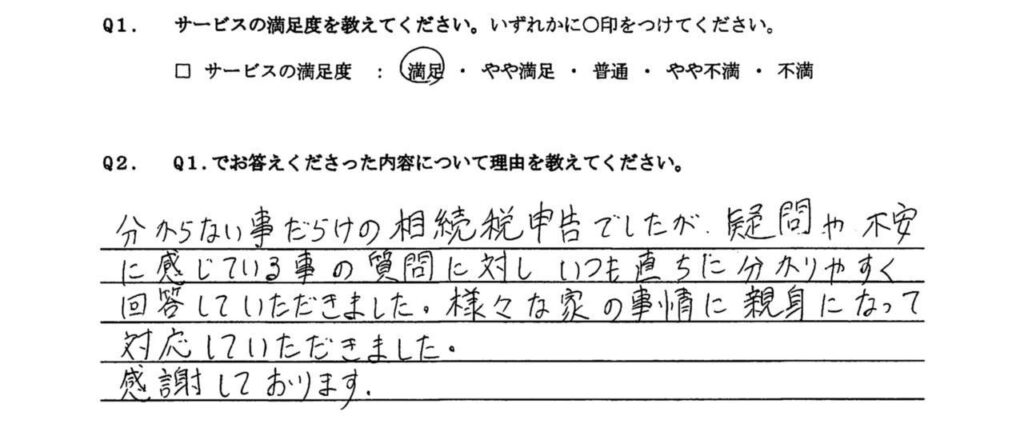 Q1. サービスの満足度を教えてください。いずれかに○印をつけてください。
□ サービスの満足度 : 満足 ・ やや満足 ・ 普通 ・ やや不満 ・ 不満
Q2. Q1.でお答えくださった内容について理由を教えてください。
分からない事だらけの相続税申告でしたが、疑問や不安
に感じている事の質問に対し いつも直ちに分かりやすく
回答していただきました。様々な家の事情に親身になって
対応していただきました。
感謝しております.